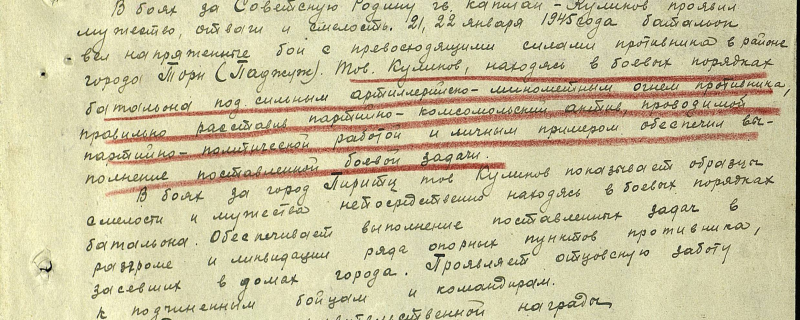 В боях за Советскую Родину гв. капитан Куликов проявил
мужество, отваги и смелость. 21, 22 января 1945 года батальон
вел напряженные бои с превосходящими силами противника в районе
города Торн (Паджуж). Тов. Куликов, находясь в боевых порядках
батальона под сильным артиллерийско-минометным огнем противника,
правильно расставив партийно-комсомольский актив, проводимой
партийно-политической работой и личным примером обеспечил вы-
полнение поставленной боевой задачи.
В боях за город Пиритц тов Куликов показывает образцы
смелости и мужества непосредственно находясь в боевых порядках
батальона. Обеспечивает выполнение поставленных задач в
разгроме и ликвидации ряда опорных пунктов противника,
засевших в домах города. Проявляет отцовскую заботу
к подчиненным бойцам и командирам.
правительственной награды